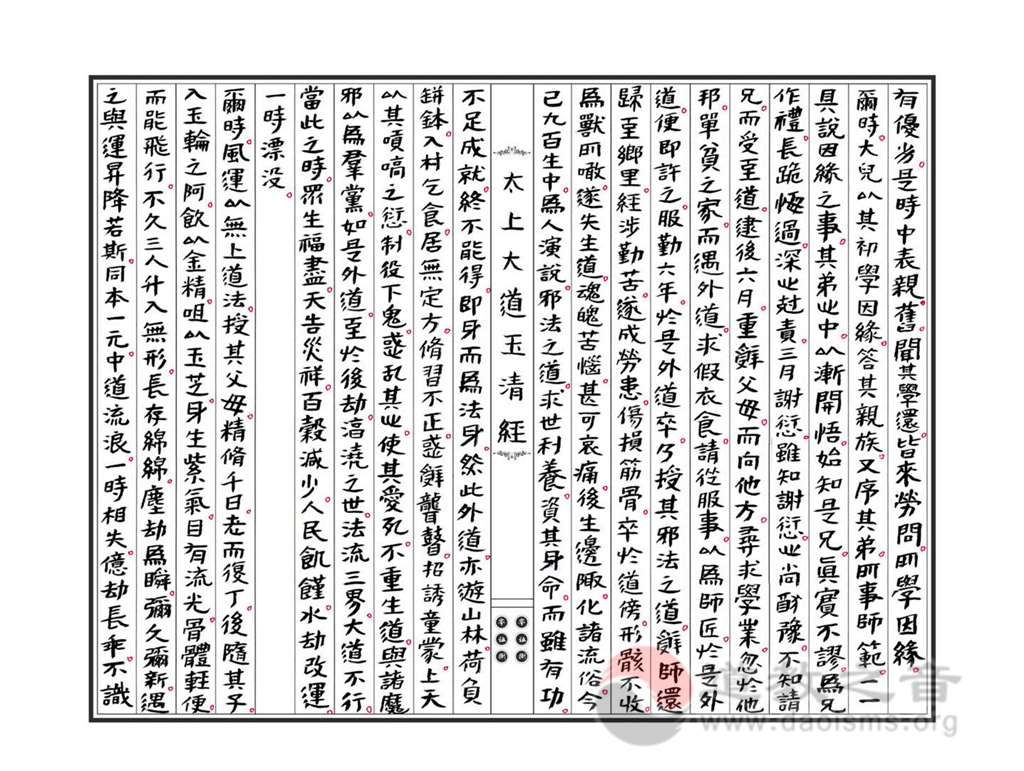 有優劣是時中表親舊聞其學還皆來勞問所學因緣
爾時大兒以其初學因緣答其親族又序其弟所事師範一一
具說因緣之事其弟心中以漸開悟始知是兄真實不謬為兄
作禮長跪悔過深心尅責三月謝愆雖知謝愆心尚猶豫不知請
兄而受至道逮後六月重辭父母而向他方尋求學業忽於他
邦單貧之家而遇外道求假衣食請從服事以為師匠於是外
道便即許之服勤六年於是外道卒乃授其邪法之道辭師還
歸至鄉里經涉勤苦遂成勞患傷損筋骨卒於道傍形骸不收
為獸所噉遂失生道魂魄苦惱甚可哀痛後生邊陬化諸流俗今
已九百生中為人演說邪法之道求世利養資其身命而雖有功
太上大道玉清經
不足成就終不能得即身而為法身然此外道亦遊山林荷負
缾鉢入村乞食居無定方脩習不正惑辭聾瞽招誘童蒙上天
以其嗔嗃之愆制役下鬼惑乱其心使其愛死不重生道與諸魔
邪以為羣黨如是外道至於後劫濁澆之世法流三界大道不行
當此之時眾生福盡天告災祥百穀減少人民飢饉水劫改運
一時漂没
爾時風運以無上道法授其父母精脩千日老而復丁後隨其子
入玉輪之阿飲以金精咀以玉芝身生紫氣目有流光骨體輕便
而能飛行不久三人升入無形長存綿綿塵劫為瞬彌久彌新遇
之與運昇降若斯同本一元中道流浪一時相失億劫長乖不識
道教之音
www.daoisms.org